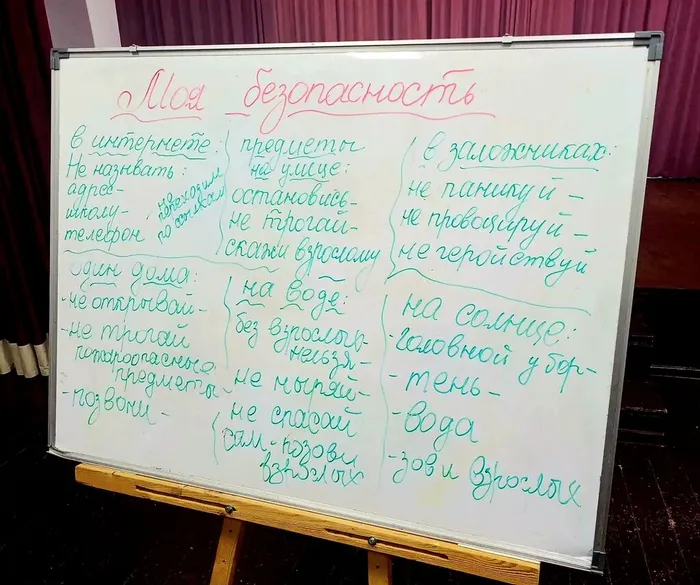 Моя безопасность
в интернете:
Не называть:
адрес-
школу-
телефон
не переходим
по ссылкам
предметы
на улице:
остановись-
не трогай-
скажи взрослому
в заложниках:
не паникуй-
не провоцируй-
не геройствуй
один дома:
-не открывай-
-не трогай
пожароопасные
предметы-
-позвони-
на воде:
без взрослых
нельзя-
-не ныряй-
не спасай
сам-позови
взрослых
на солнце:
-головной убор-
-тень-
-вода
-зови взрослых